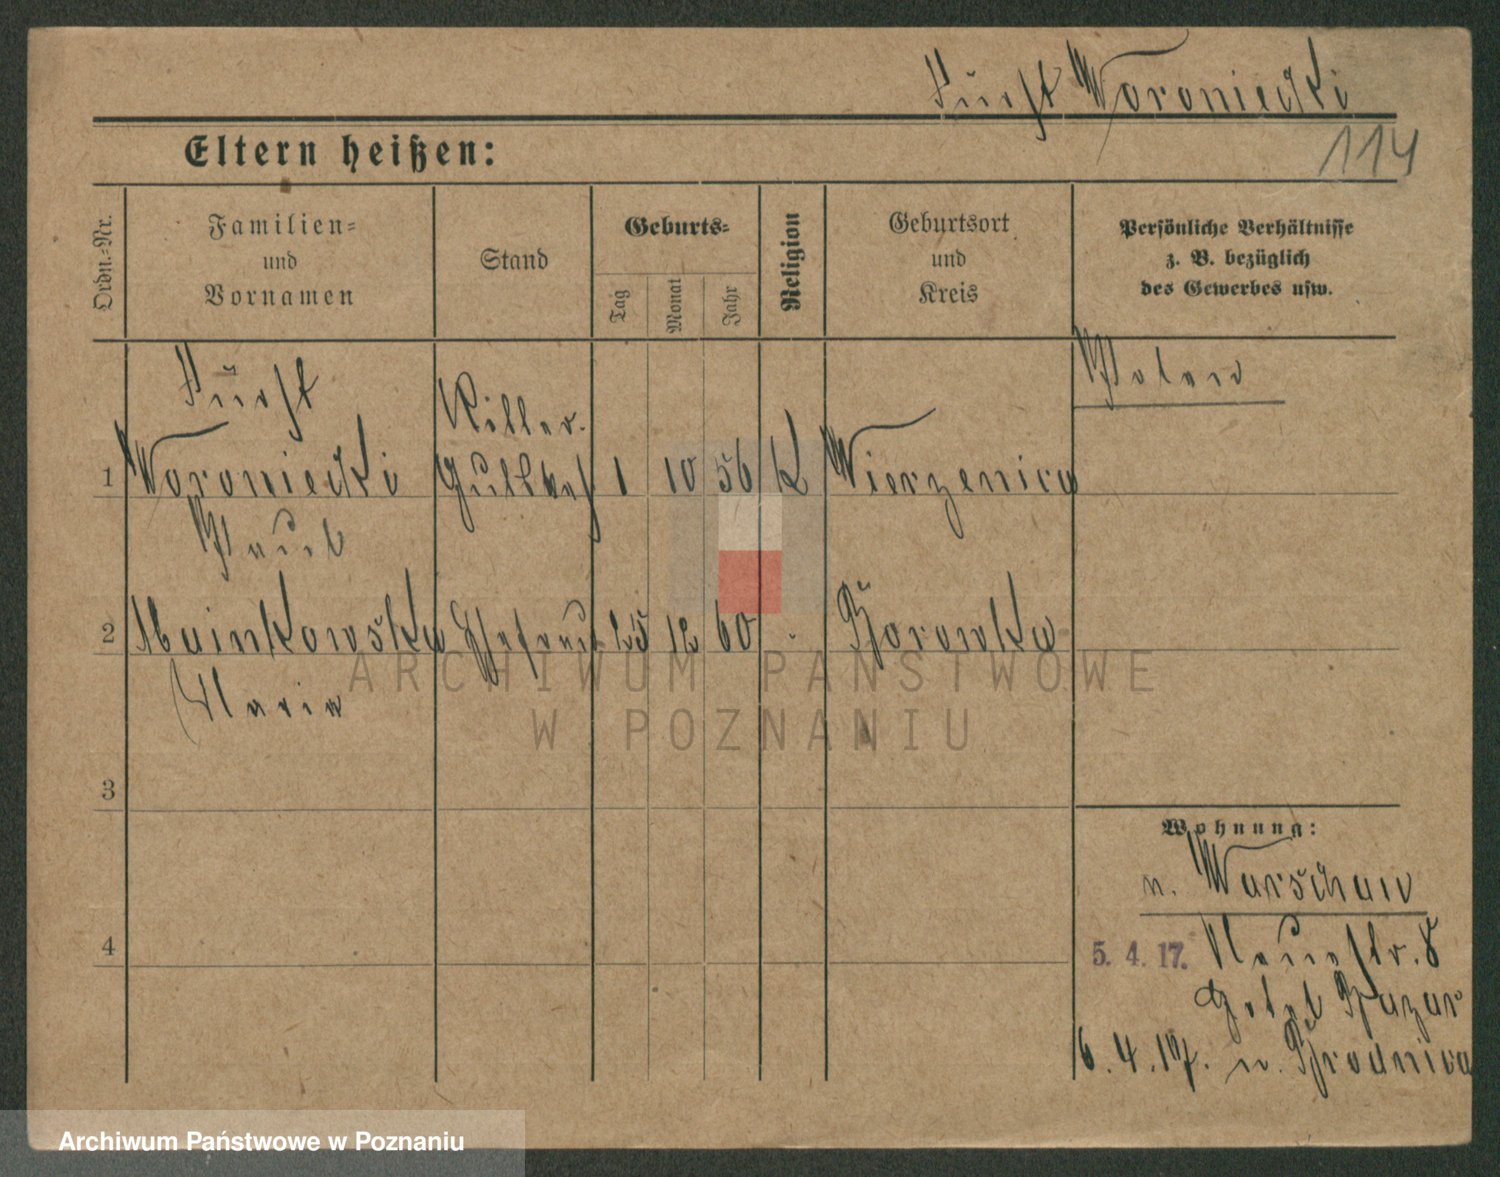 Fürst Woroniecki
114
Eltern heißen:
Ordn.-Nr.
Familien-
und
Vornamen
Stand
Geburts-
Tag
Monat
Jahr
Religion
Geburtsort
und
Kreis
Persönliche Verhältnisse
z. B. bezüglich
des Gewerbes usw.
Polen
1
Fürst
Woroniecki
Paul
Ritter-
Gutsbes
1 10 56 K
Wierzenica
2
Mainkowska
Maria
Ehefrau
25 12 60
Borowka
3
4
Wohnung:
n. Warschau
5. 4. 17. Neuestr. 8
Hotel Bazar
6. 4. 17. n. Brodnica
ARCHIWUM PAŃSTWOWE
W POZNANIU
Archiwum Państwowe w Poznaniu